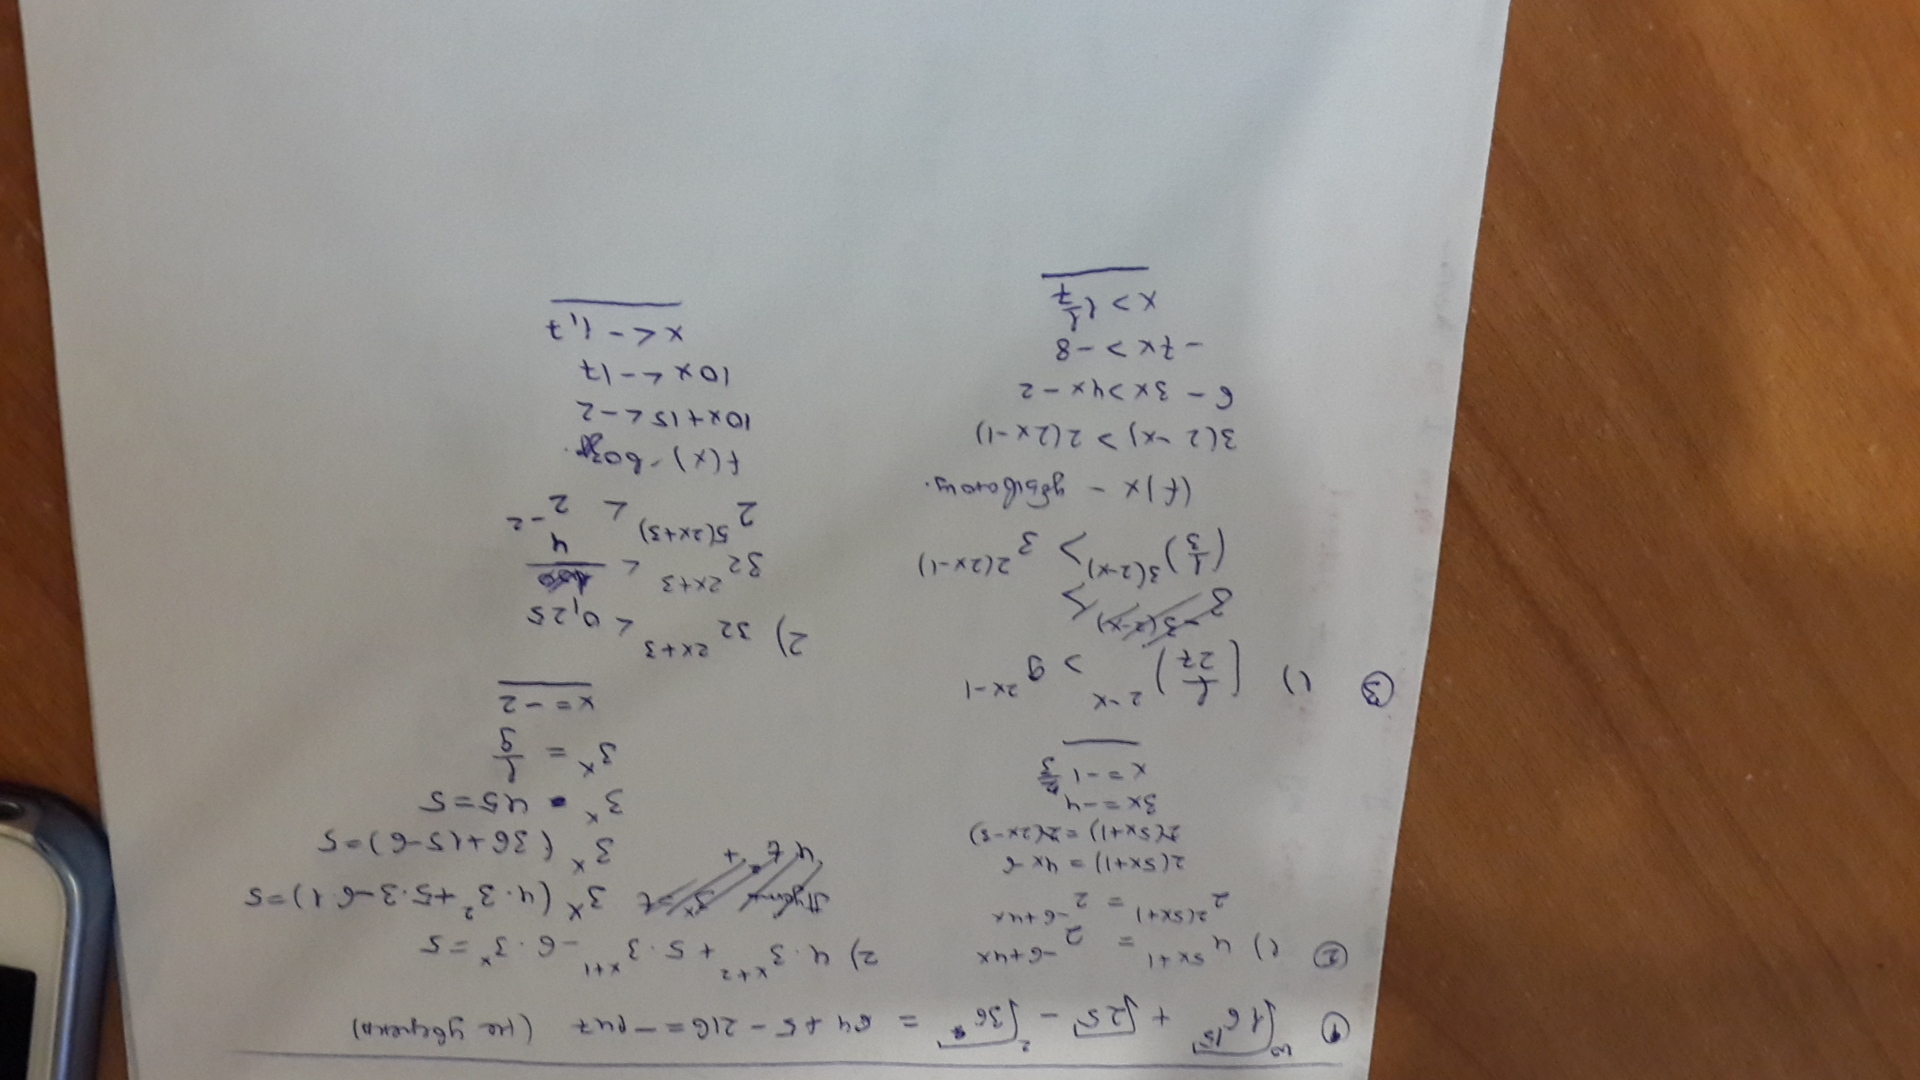 ① ∛16^1,5 + √25 - ²√36^3 = 64 + 5 - 216 = -147 (не уверена)
② 1) 4^5x+1 = 2^-6+4x
2^2(5x+1) = 2^-6+4x
2(5x+1) = 4x-6
2(5x+1) = 2(2x-3)
3x = -4
x = -1 1/3
2) 4·3^x+2 + 5·3^x+1 - 6·3^x = 5
Пусть 3^x = t
3^x (4·3^2 + 5·3 - 6·1) = 5
4t +
3^x (36+15-6) = 5
3^x · 45 = 5
3^x = 1/9
x = -2
③ 1) (1/27)^2-x > 9^2x-1
3^-3(2-x) >
(1/3)^3(2-x) > 3^2(2x-1)
(f)x - убывающ.
3(2-x) > 2(2x-1)
6-3x > 4x-2
-7x > -8
x > 1 1/7
2) 32^2x+3 < 0,25
32^2x+3 < 1/4
2^5(2x+3) < 2^-2
f(x) - возр.
10x+15 < -2
10x < -17
x < -1,7